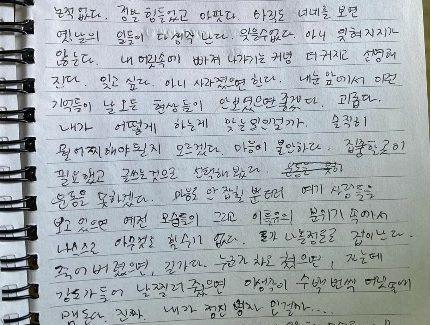 눈치 없다. 정말 힘들었고 아팠다. 아직도 너네를 보면
옛날의 일들이 다 생각난다. 잊을수없다. 아니 잊혀지지가
않는다. 내 머릿속에 빠져 나가기는 커녕 더 커지고 선명해
진다. 잊고 싶다. 아니 사라졌으면 한다. 내눈 앞에서 이런
기억들이 날 모든 현상들이 안보였으면 좋겠다. 괴롭다.
내가 어떻게 하는게 맞는 일인걸까. 솔직히
뭘 어찌해야될지 모르겠다. 마음이 불안하다. 집중할 곳이
필요했고 글쓰는것으로 선택해 봤다.
운동은 못하겠다. 마음도 안 잡힐 뿐더러 여기 사람들을
보고 있으면 예전 모습들이 그리고 이들의 분위기 속에서
나 스스로 아무것도 할수가 없다. 겁이난다.
죽어 버렸으면, 싶다. 누군가 차로 쳤으면, 자는데
강도가 들어 날 찔러 줬으면 이 생각이 수백번씩 머릿속에
맴돈다. 진짜 내가 정신병자 인걸까...